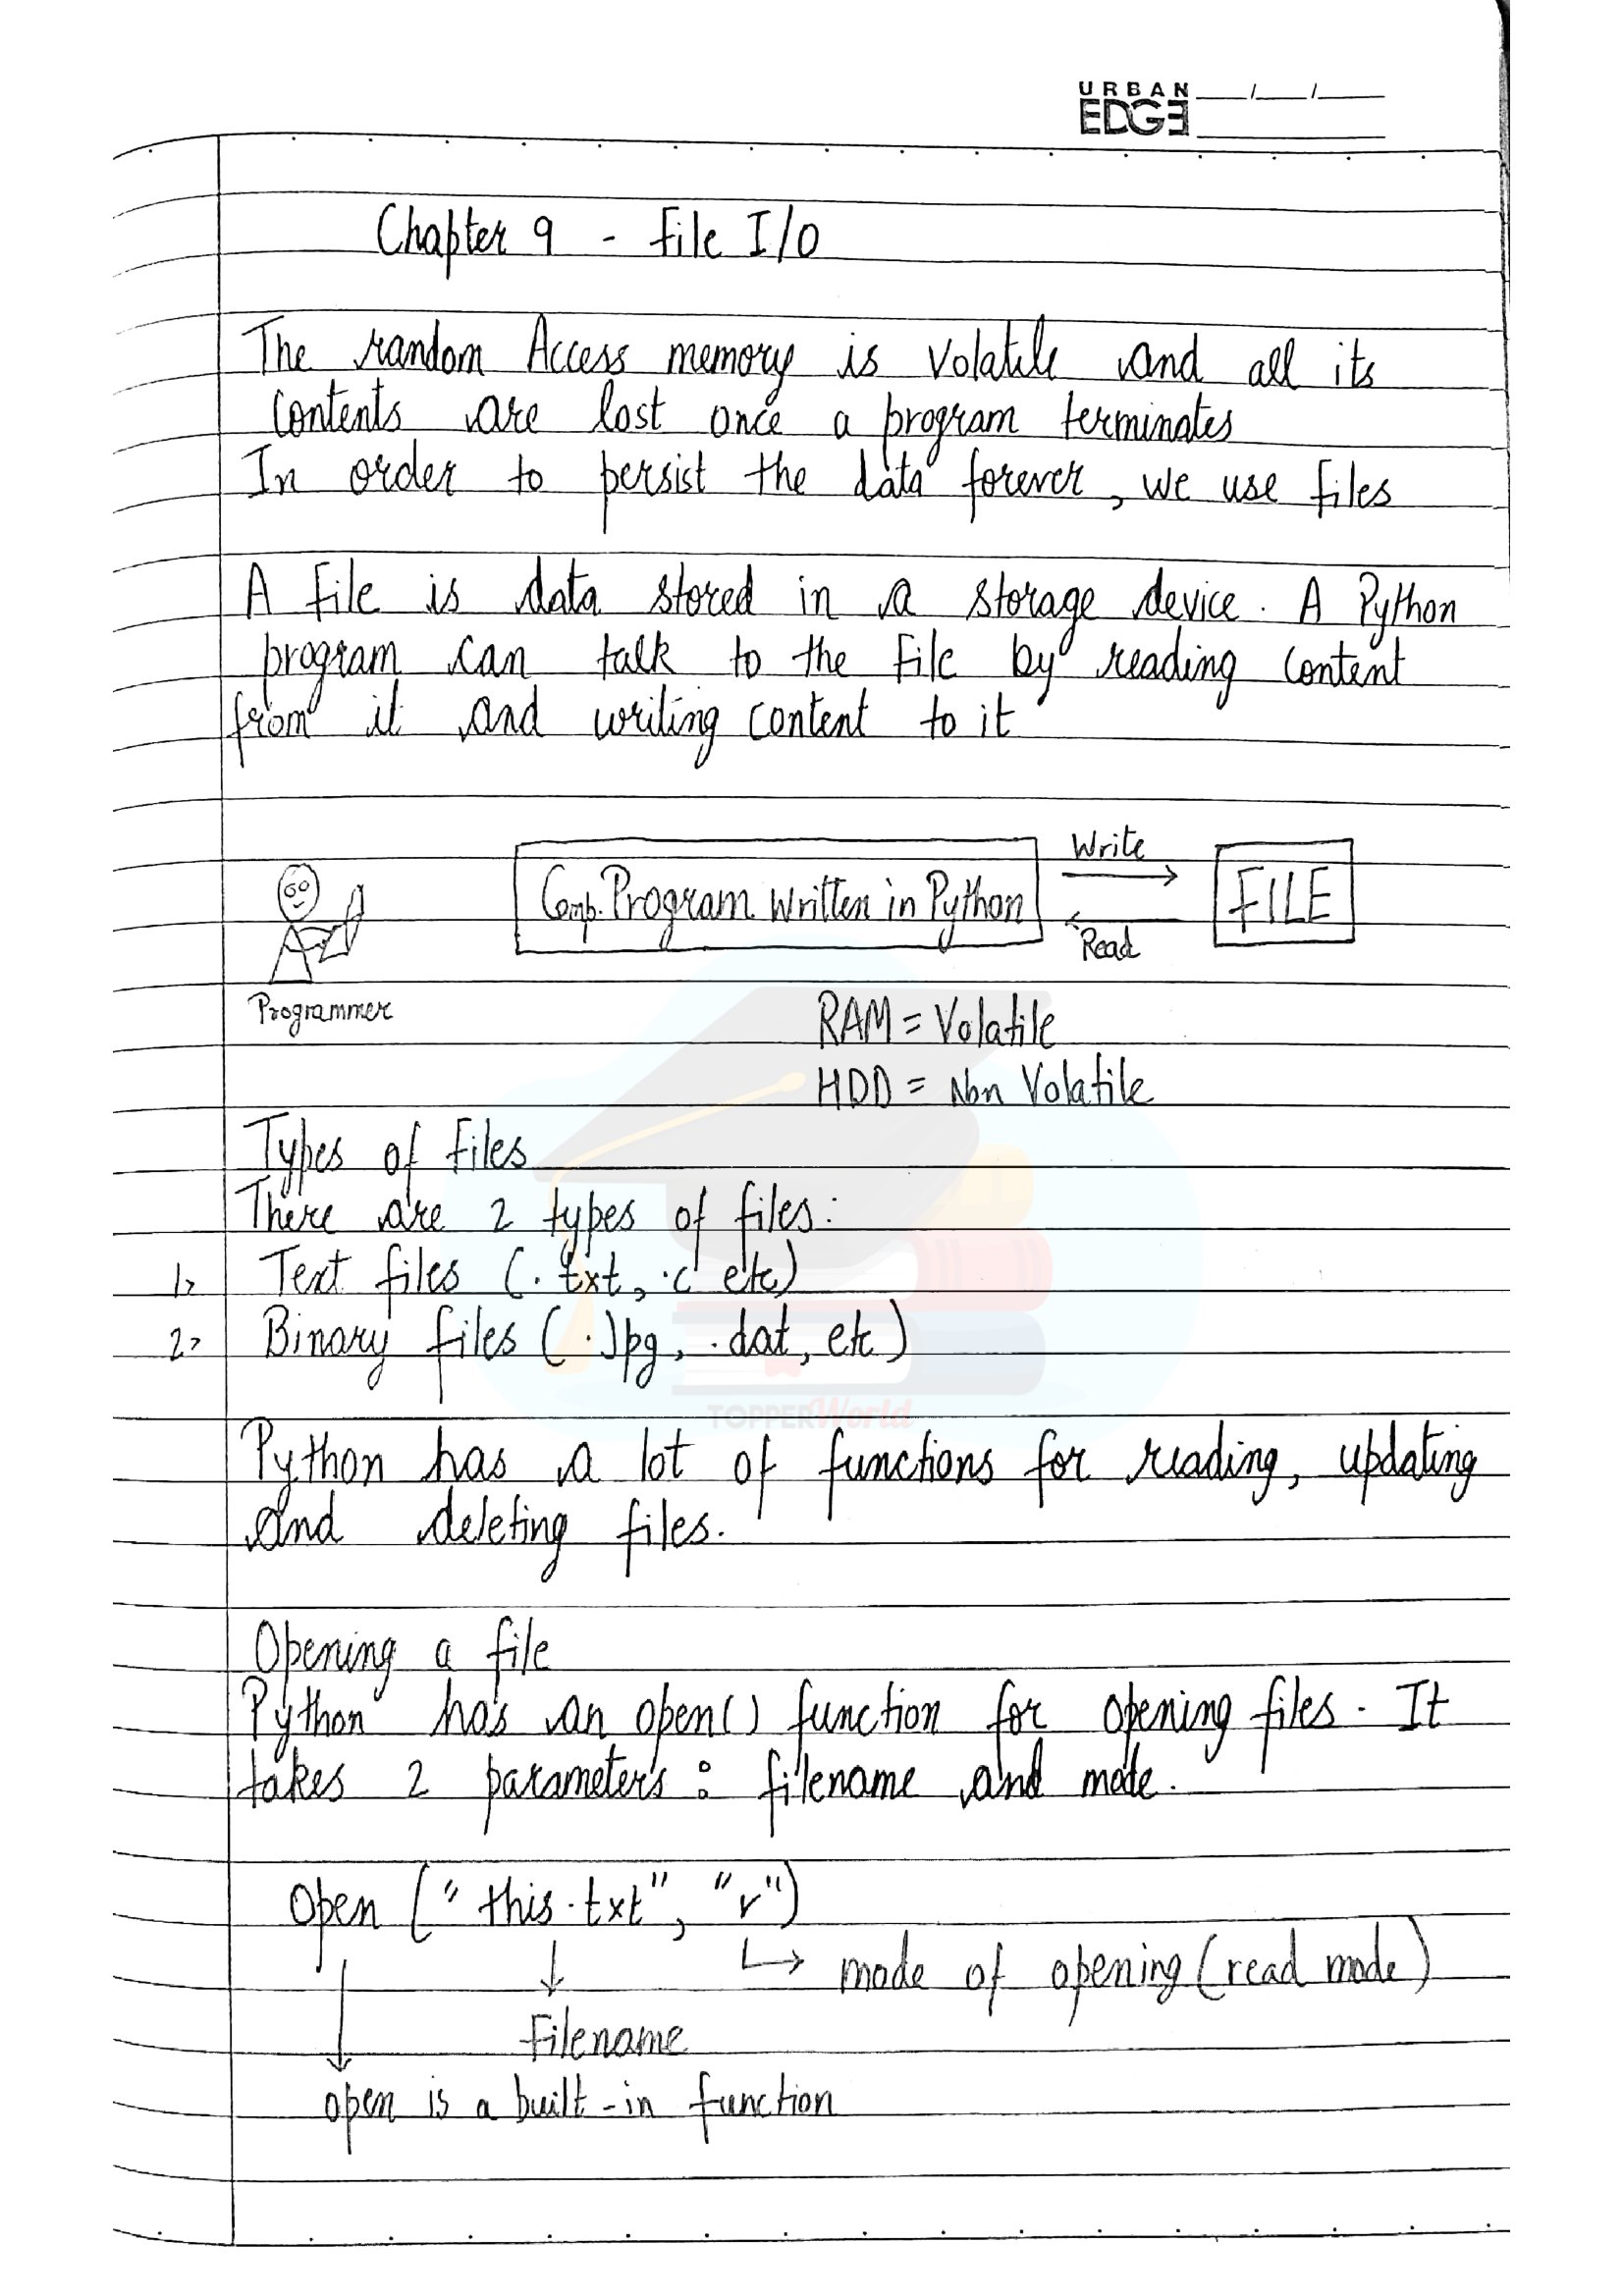 URBAN
EDGE
Chapter 9 - File I/O
The random Access memory is volatile and all its
contents are lost once a program terminates
In order to persist the data forever, we use files
A file is data stored in a storage device. A Python
program can talk to the file by reading content
from it and writing content to it
Write
Comp. Program Written in Python
FILE
Read
Programmer
RAM = Volatile
HDD = Non Volatile
Types of files
There are 2 types of files:
1> Text files (.txt, .c etc)
2> Binary files (.Jpg, .dat, etc)
TOPPERWorld
Python has a lot of functions for reading, updating
and deleting files.
Opening a file
Python has an open() function for opening files. It
takes 2 parameters: filename and mode.
Open ("this.txt", "r")
mode of opening (read mode)
Filename
open is a built-in function